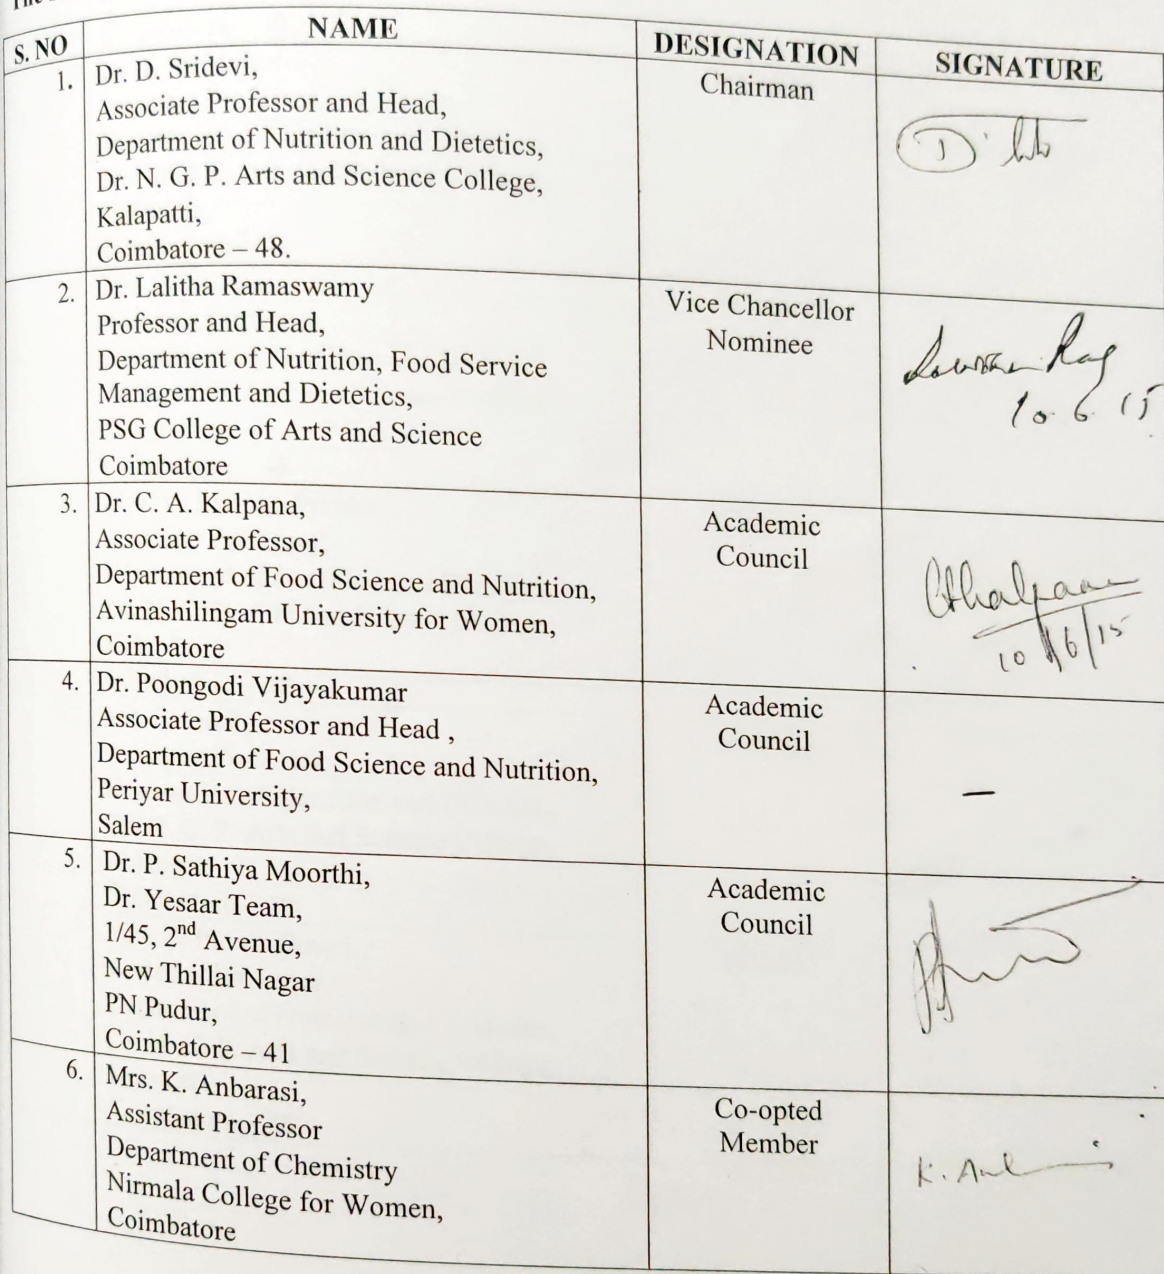 S. NO NAME DESIGNATION SIGNATURE
1. Dr. D. Sridevi,
Associate Professor and Head,
Department of Nutrition and Dietetics,
Dr. N. G. P. Arts and Science College,
Kalapatti,
Coimbatore – 48.
Chairman
2. Dr. Lalitha Ramaswamy
Professor and Head,
Department of Nutrition, Food Service
Management and Dietetics,
PSG College of Arts and Science
Coimbatore
Vice Chancellor
Nominee
10.6.15
3. Dr. C. A. Kalpana,
Associate Professor,
Department of Food Science and Nutrition,
Avinashilingam University for Women,
Coimbatore
Academic
Council
10/6/15
4. Dr. Poongodi Vijayakumar
Associate Professor and Head ,
Department of Food Science and Nutrition,
Periyar University,
Salem
Academic
Council
–
5. Dr. P. Sathiya Moorthi,
Dr. Yesaar Team,
1/45, 2nd Avenue,
New Thillai Nagar
PN Pudur,
Coimbatore – 41
Academic
Council
6. Mrs. K. Anbarasi,
Assistant Professor
Department of Chemistry
Nirmala College for Women,
Coimbatore
Co-opted
Member